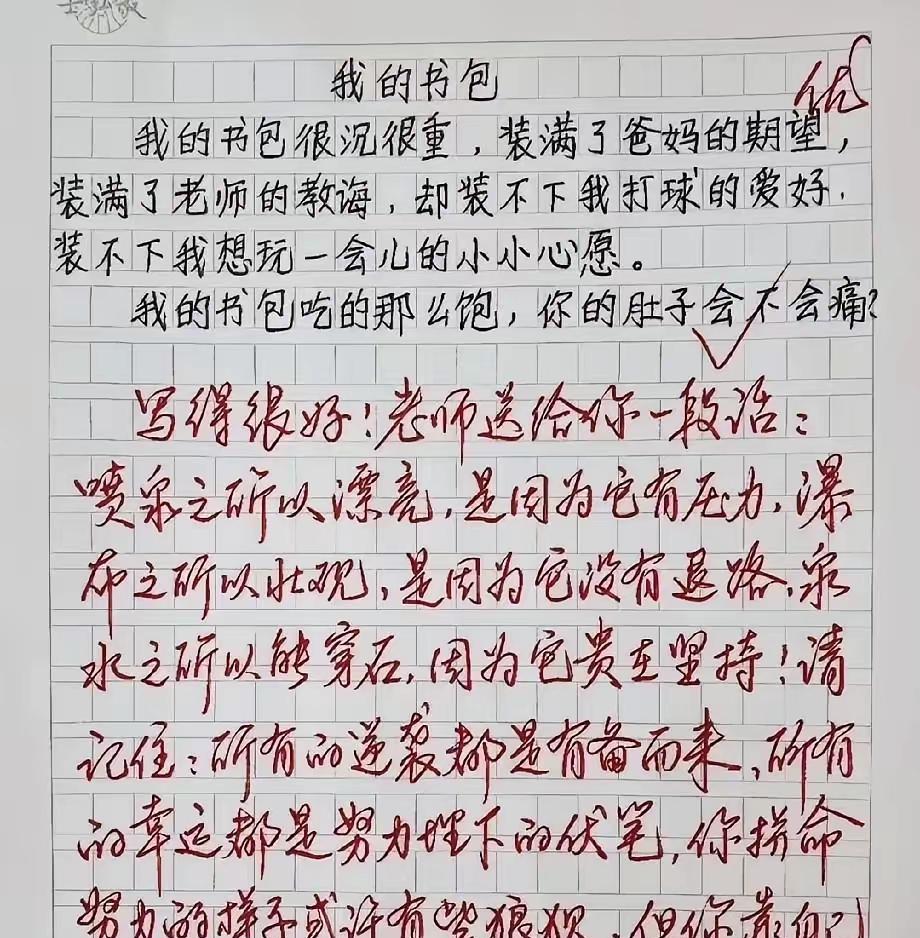 我的书包
优
我的书包很沉很重，装满了爸妈的期望，
装满了老师的教诲，却装不下我打球的爱好.
装不下我想玩一会儿的小小心愿。
我的书包吃的那么饱，你的肚子会不会痛?
写得很好！老师送给你一段话：
喷泉之所以漂亮，是因为它有压力，瀑
布之所以壮观，是因为它没有退路，泉
水之所以能穿石，因为它贵在坚持！请
记住：所有的逆袭都是有备而来，所有
的幸运都是努力埋下的伏笔，你拼命
努力的样子或许有些狼狈，但你靠自己